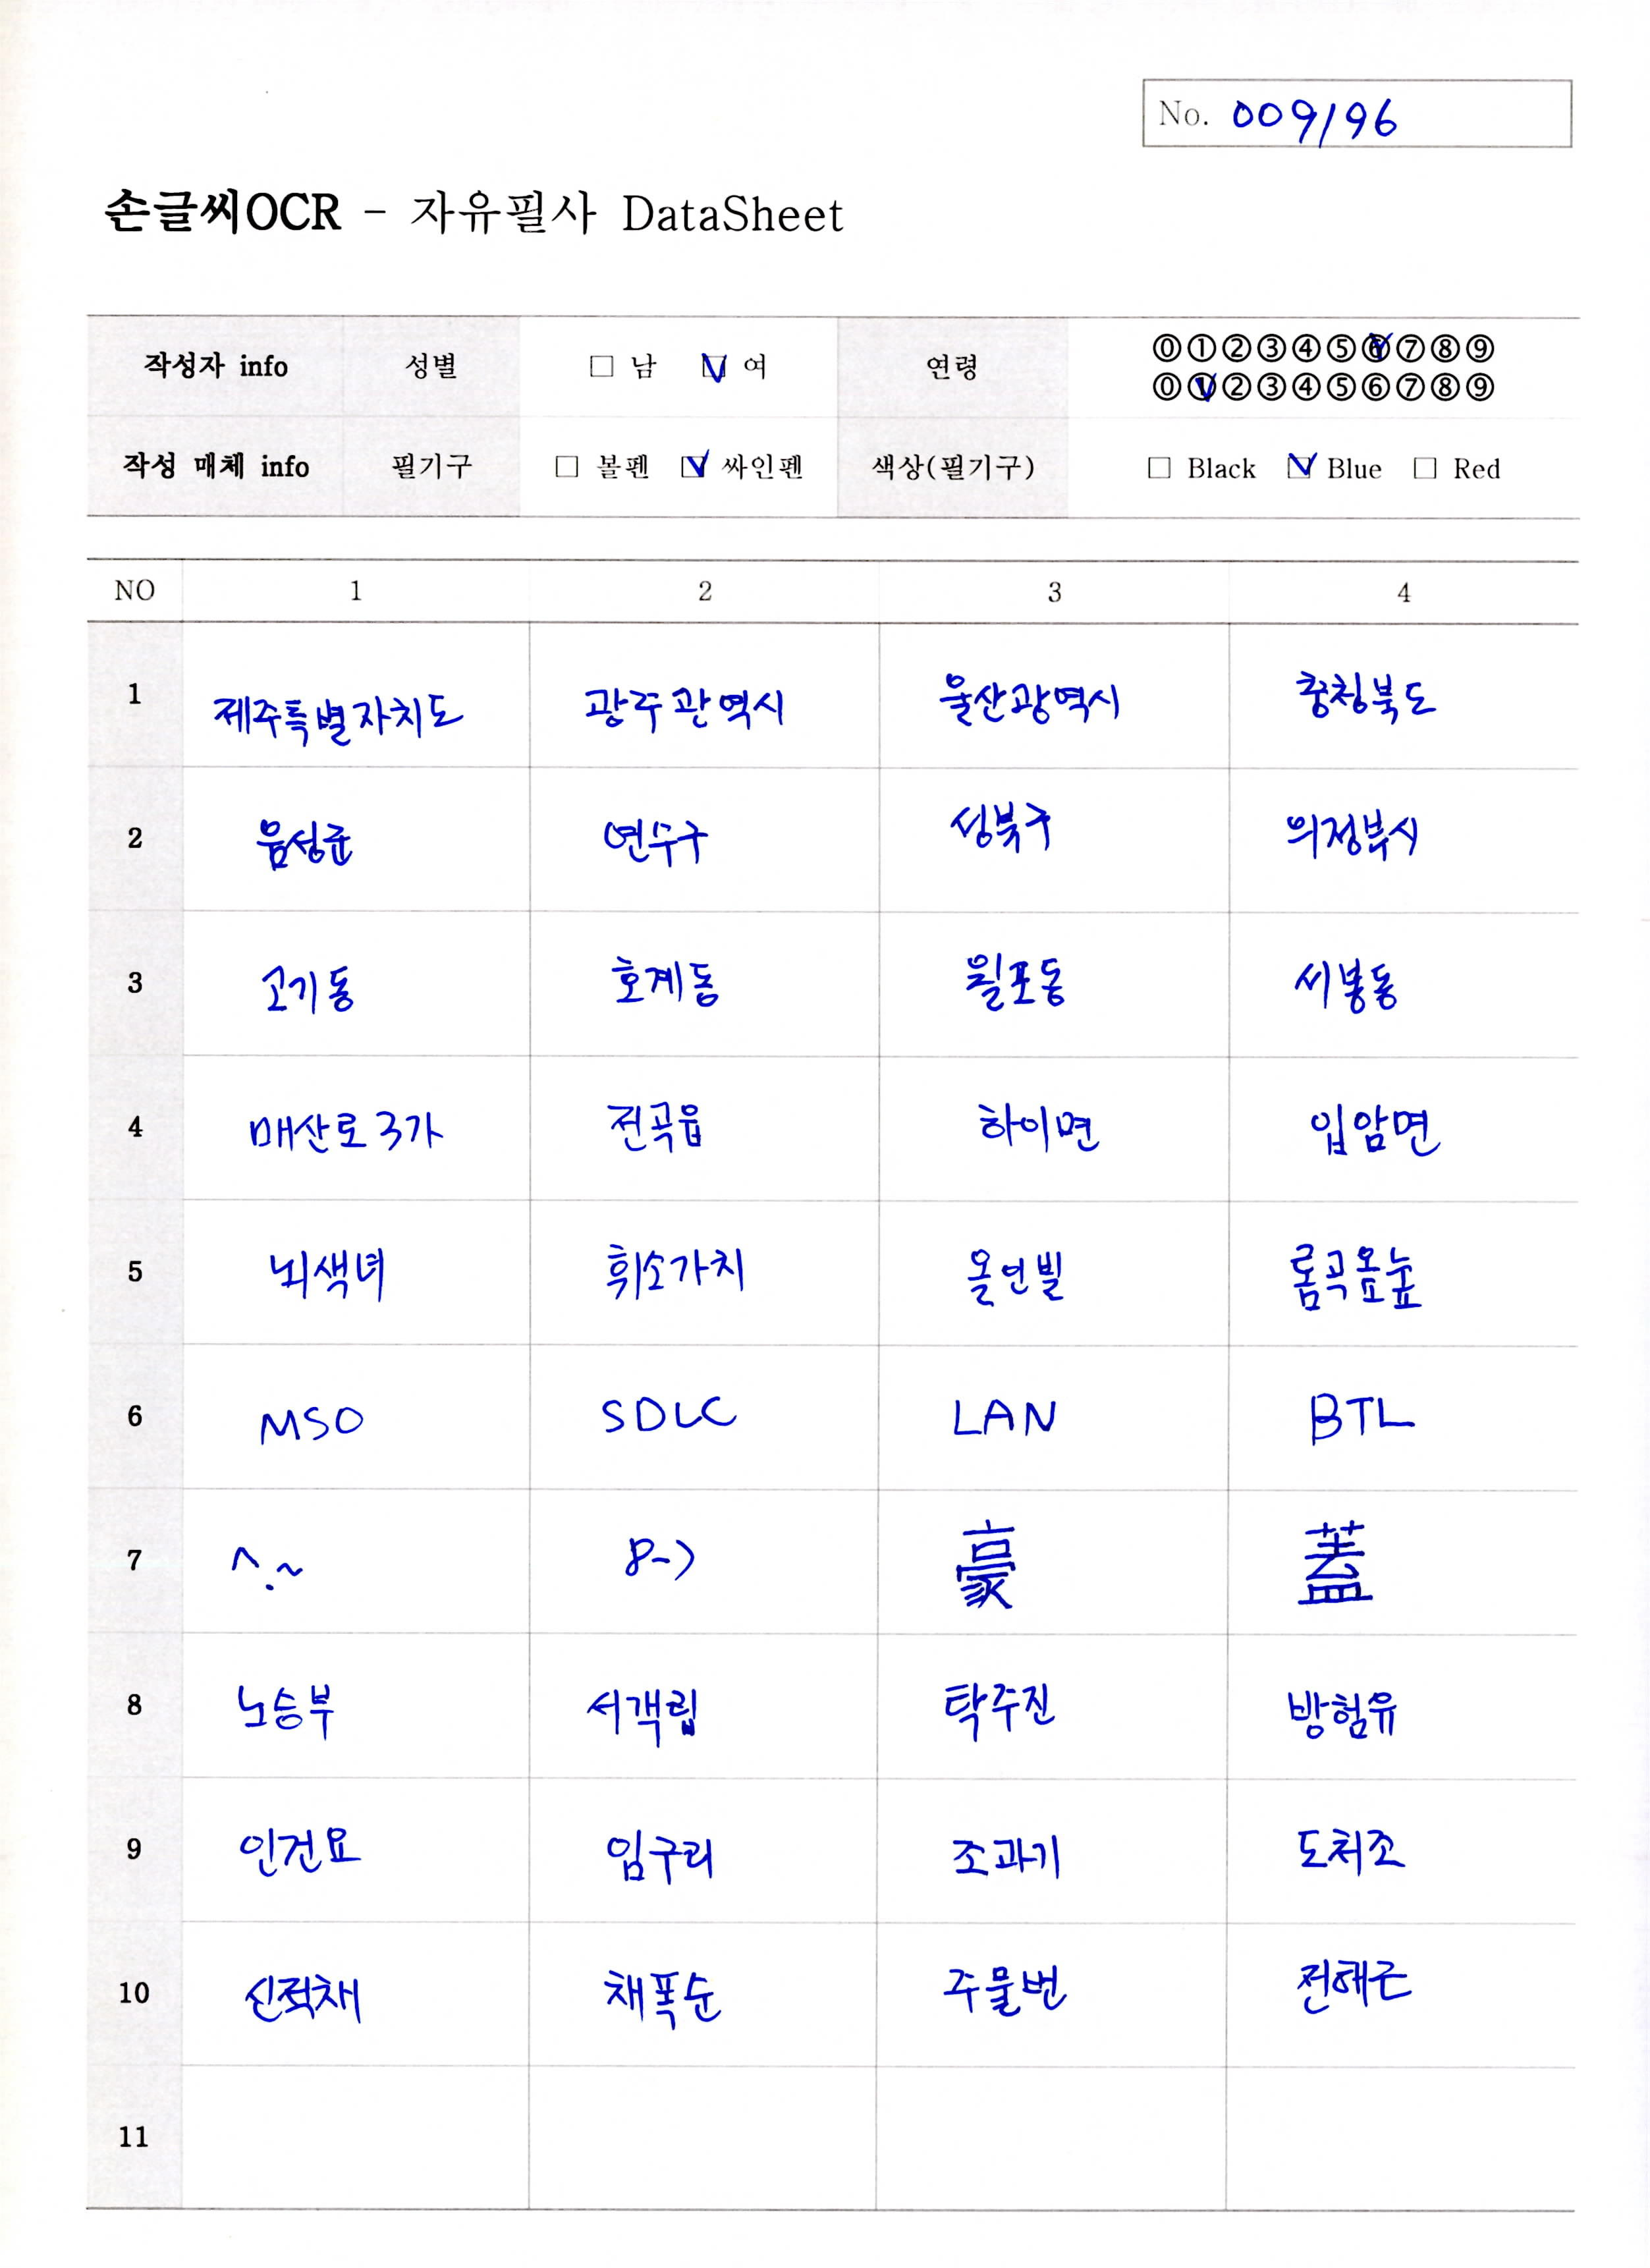 No. 009196
손글씨OCR - 자유필사 DataSheet
작성자 info 성별 □ 남 ☑ 여 연령 ⓪①②③④⑤⑥⑦⑧⑨
⓪①②③④⑤⑥⑦⑧⑨
작성 매체 info 필기구 □ 볼펜 ☑ 싸인펜 색상(필기구) □ Black ☑ Blue □ Red
NO 1 2 3 4
1 제주특별자치도 광주관역시 울산광역시 충청북도
2 음성군 연수구 성북구 의정부시
3 고기동 호계동 월포동 씨봉동
4 매산로3가 전곡읍 하이면 입암면
5 뇌색녀 휘소가치 올인빌 롬곡옾눞
6 MSO SDLC LAN BTL
7 ^.~ 8-) 豪 蓋
8 노승부 서객립 탁주진 방험유
9 인건요 임구리 조과기 도처조
10 신적채 채폭순 주물번 전해근
11